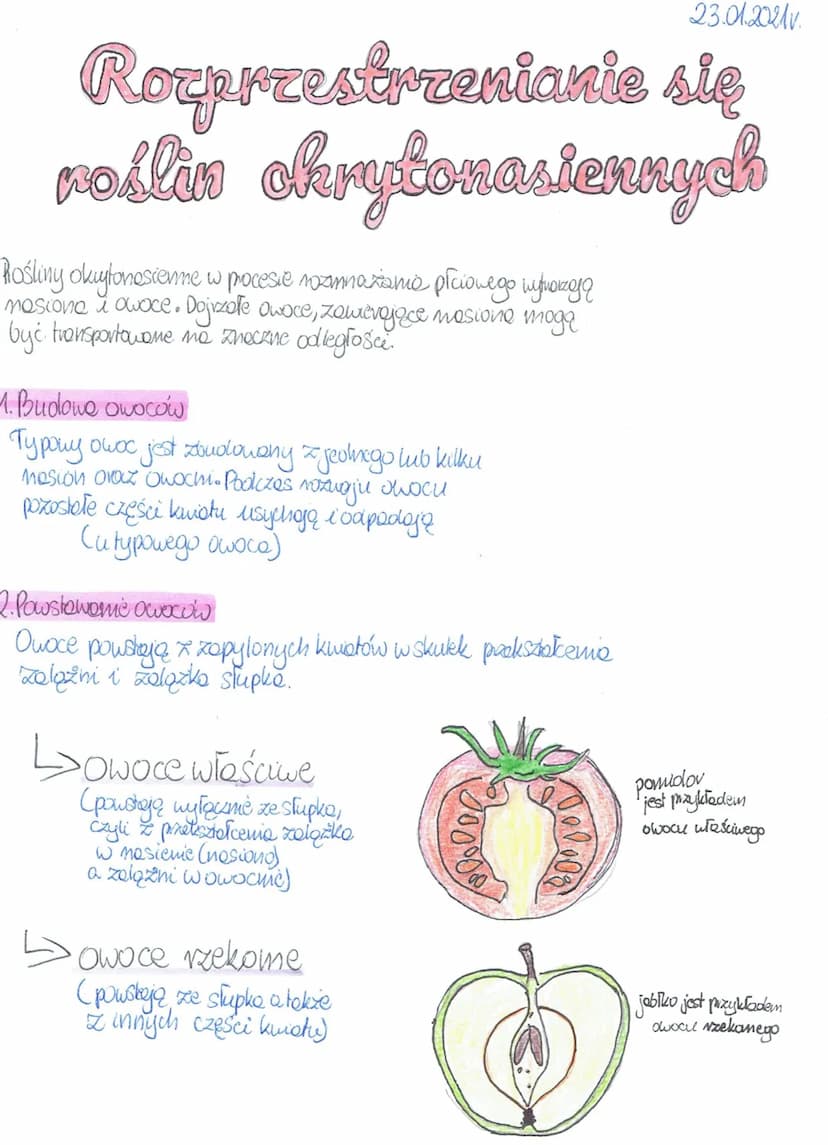 23.01.2021r.
Rozprzestrzenianie się
roślin okrytonasiennych
Rośliny okrytonasienne w procesie rozmnażania płciowego wytwarzają
nasiona i owoce. Dojrzałe owoce, zawierające nasiona mogą
być transportowane na znaczne odległości.
1. Budowa owoców
Typowy owoc jest zbudowany z jednego lub kilku
nasion oraz owocni. Podczas rozwoju owocu
pozostałe części kwiatu usychają i odpadają
(u typowego owoca)
2. Powstawanie owoców
Owoce powstają z zapylonych kwiatów w skutek przekształcenia
zalążni i zalążka słupka.
owoce właściwe
(powstają wyłącznie ze słupka,
czyli z przekształcenia zalążka
w nasienie (nasiona)
a zalążni w owocnię)
pomidor
jest przykładem
owocu właściwego
owoce rzekome
(powstają ze słupka a także
z innych części kwiatu)
jabłko jest przykładem
owocu rzekomego